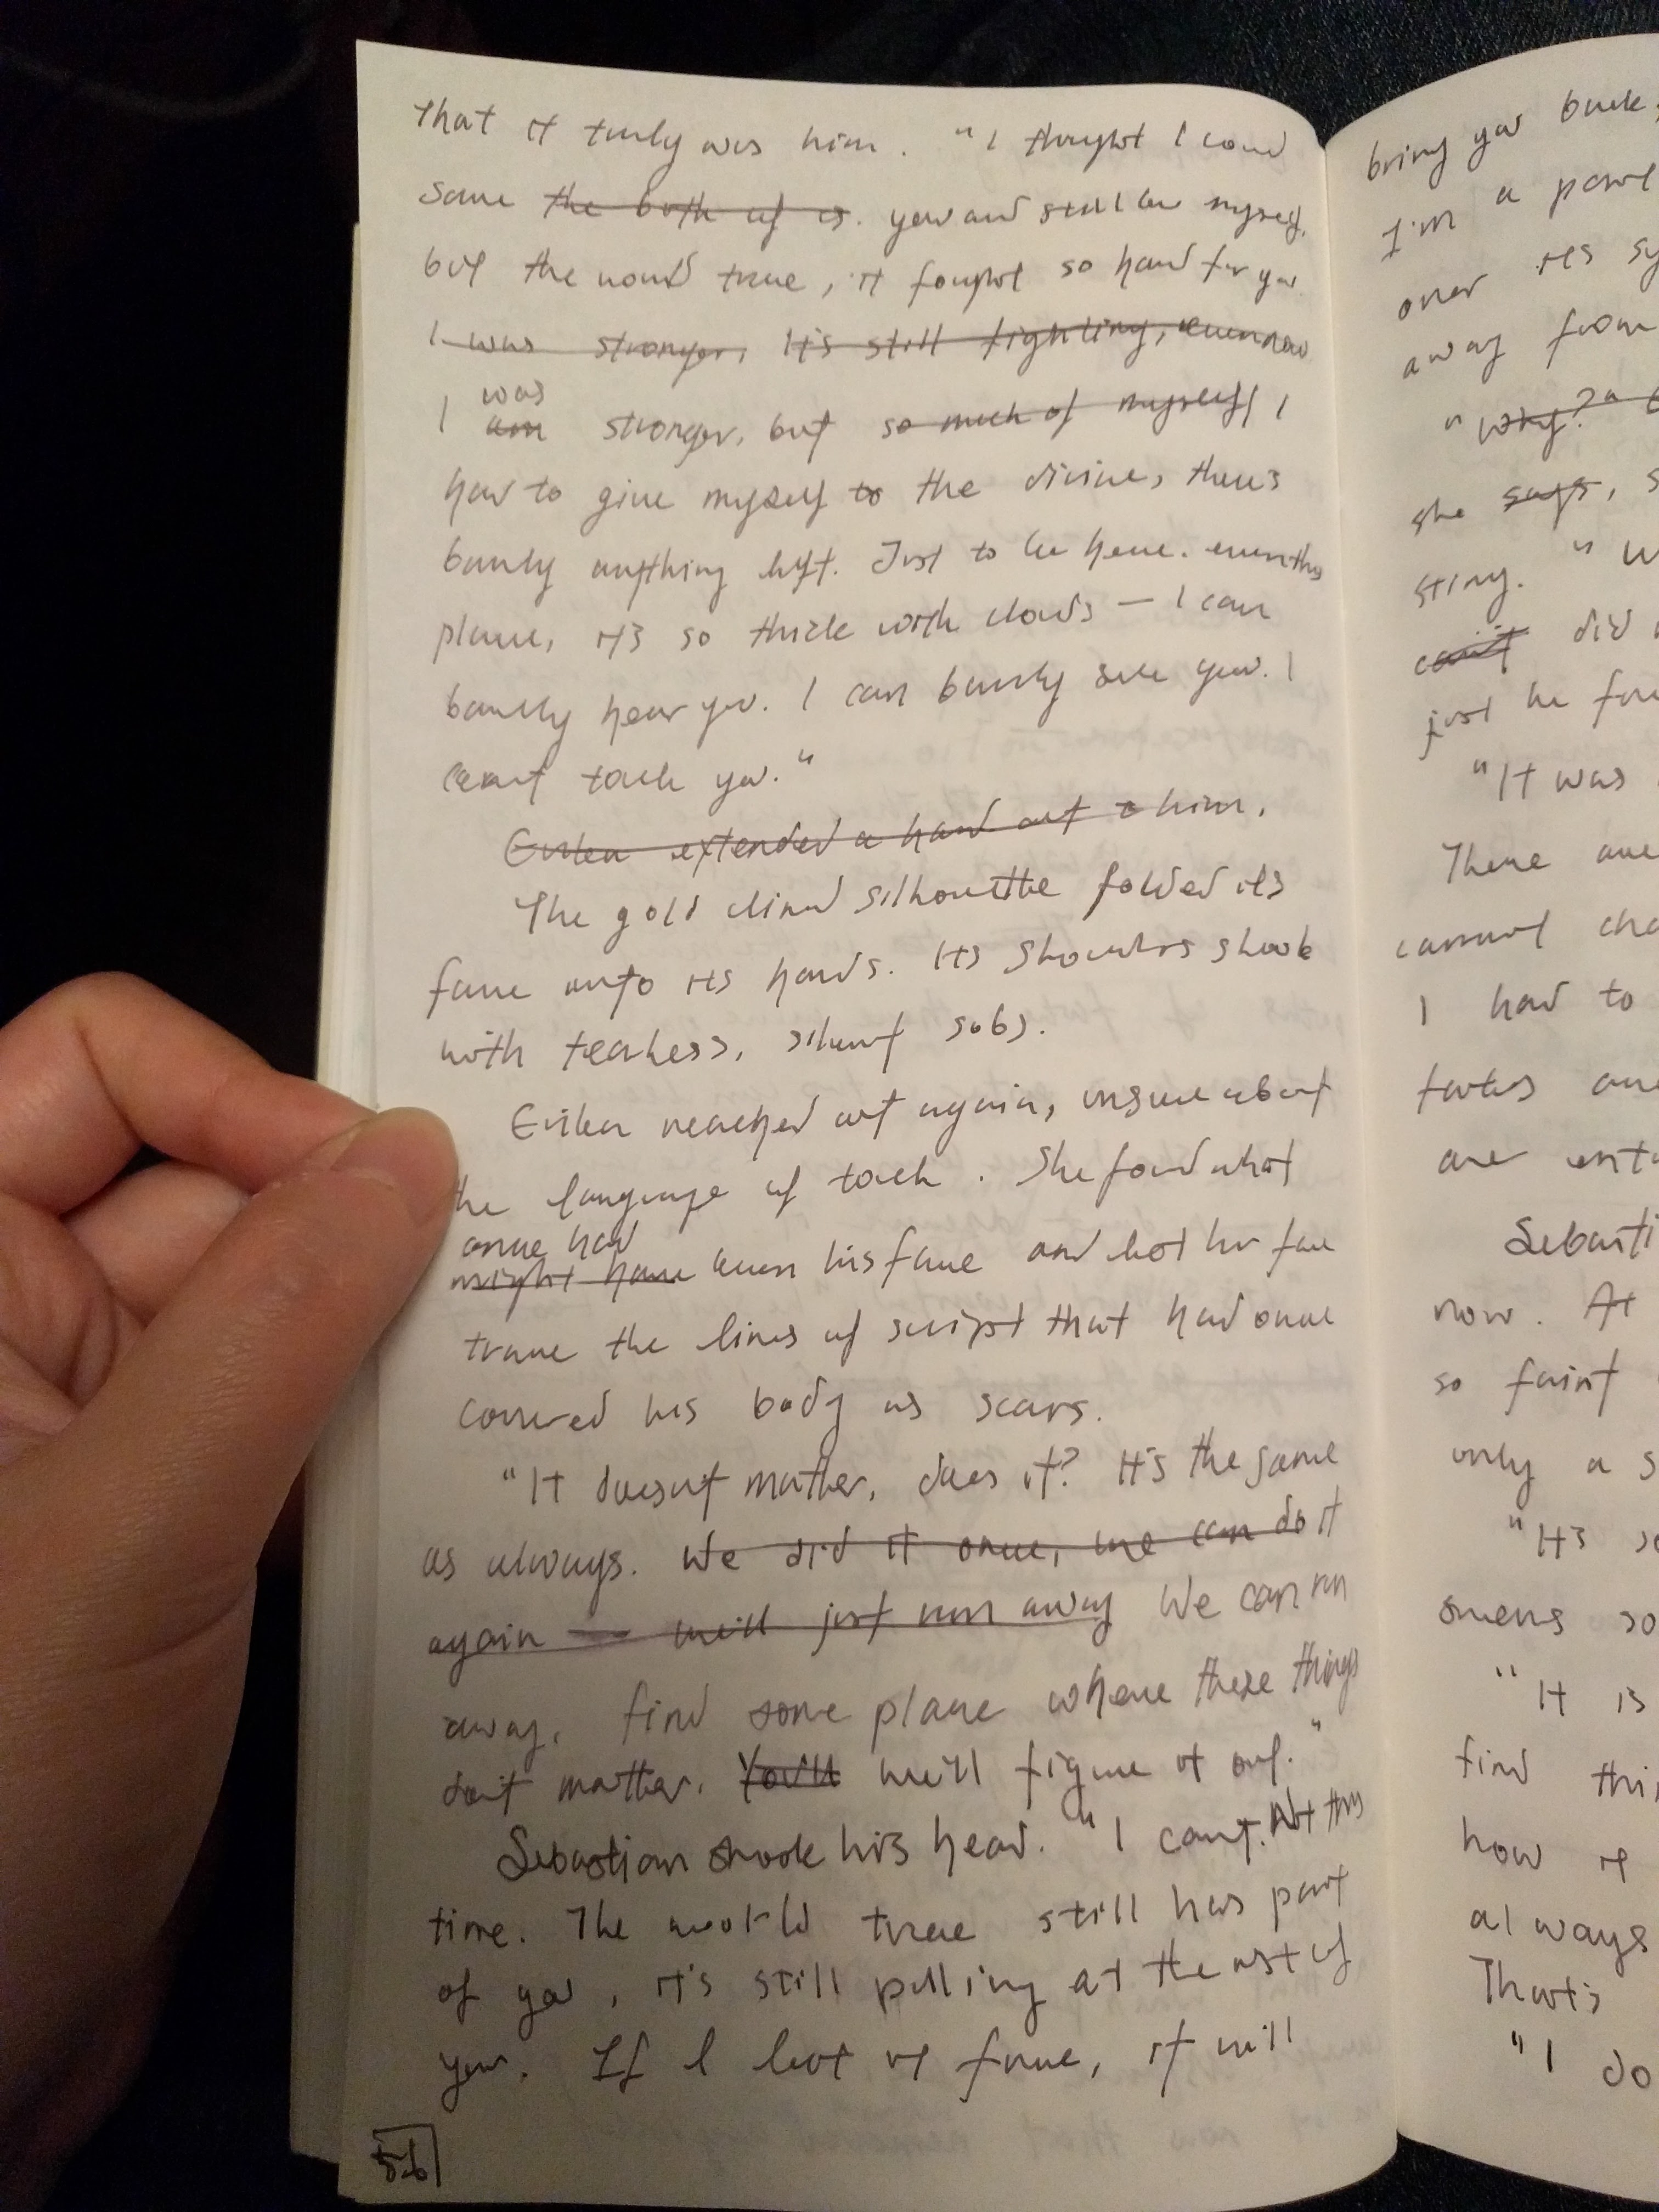 that it truly was him. "I thought I could
save the both of us. you and still be myself,
but the world tree, it fought so hard for you.
I was stronger, It's still fighting, even now
I was
am stronger, but so much of myself I
had to give myself to the divine, there's
barely anything left. Just to be here. even this
place, it's so thick with clouds — I can
barely hear you. I can barely see you. I
can't touch you."
extended a hand out to him.
The gold silhouette folded its
face into its hands. Its shoulders shook
with tearless, silent sobs.
reached out again, unsure about
the language of touch. She found what
once had
might have been his face and let her
trace the lines of script that had once
covered his body as scars.
"It doesn't matter, does it? It's the same
as always. We did it once, we can do it
again — we'll just run away We can run
away, find some place where these things
don't matter. You'll we'll figure it out."
Sebastian shook his head. "I can't. Not this
time. The world tree still has part
of you, it's still pulling at the rest of
you. If I let it free, it will
56
bring you back,
I'm a part
over its
away from
"Why?"
she says,
sting. "
can't did
just be
"It was
There are
cannot
I had to
fates are
are
Sebasti
now. At
so faint
only a s
"It's so
omens so
"It is
find thi
how it
always
That's
"I do